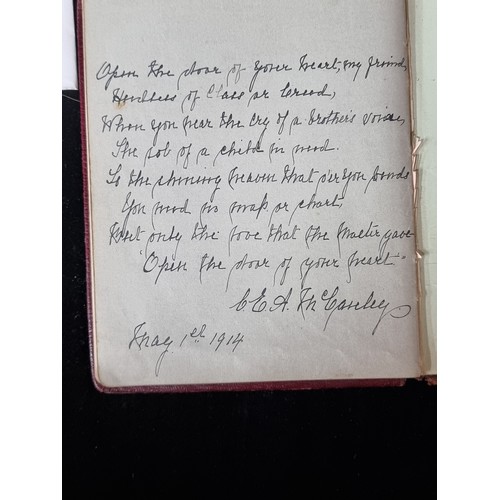 Open the door of your heart, my friend,
Heedless of Class or Creed,
When you hear the cry of a brother's voice,
The sob of a child in need.
To the shining heaven that o'er you bends
You need no map or chart,
But only the love that the Master gave
"Open the door of your heart"
C.E.A. McCauley
May 1st 1914